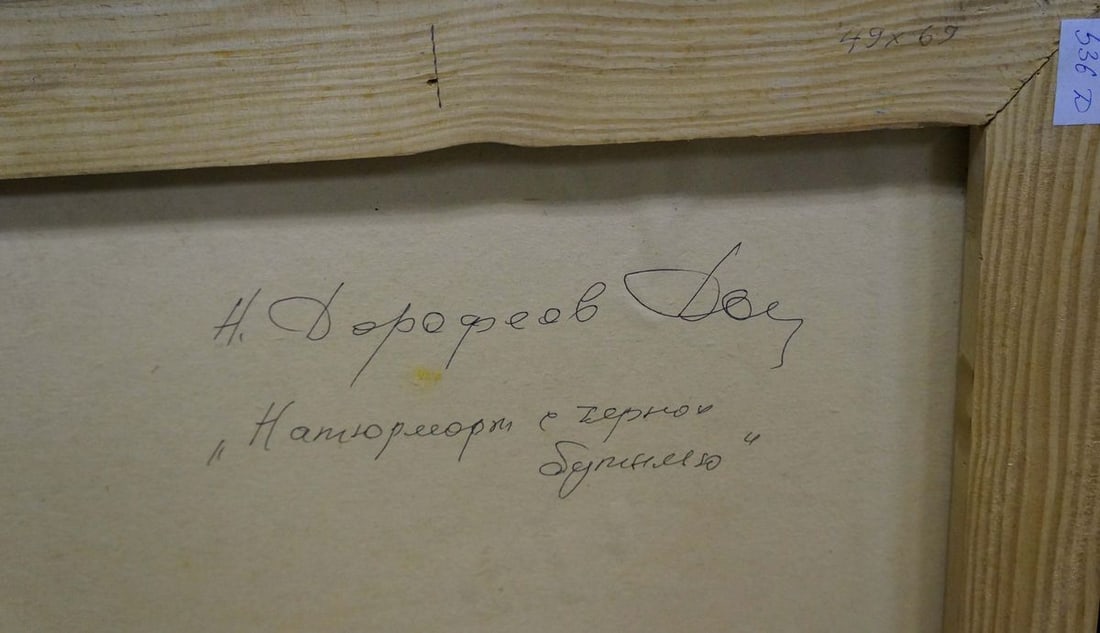 49x69
536 Д
Н. Дорофеев
„Натюрморт с черной
бутылью"